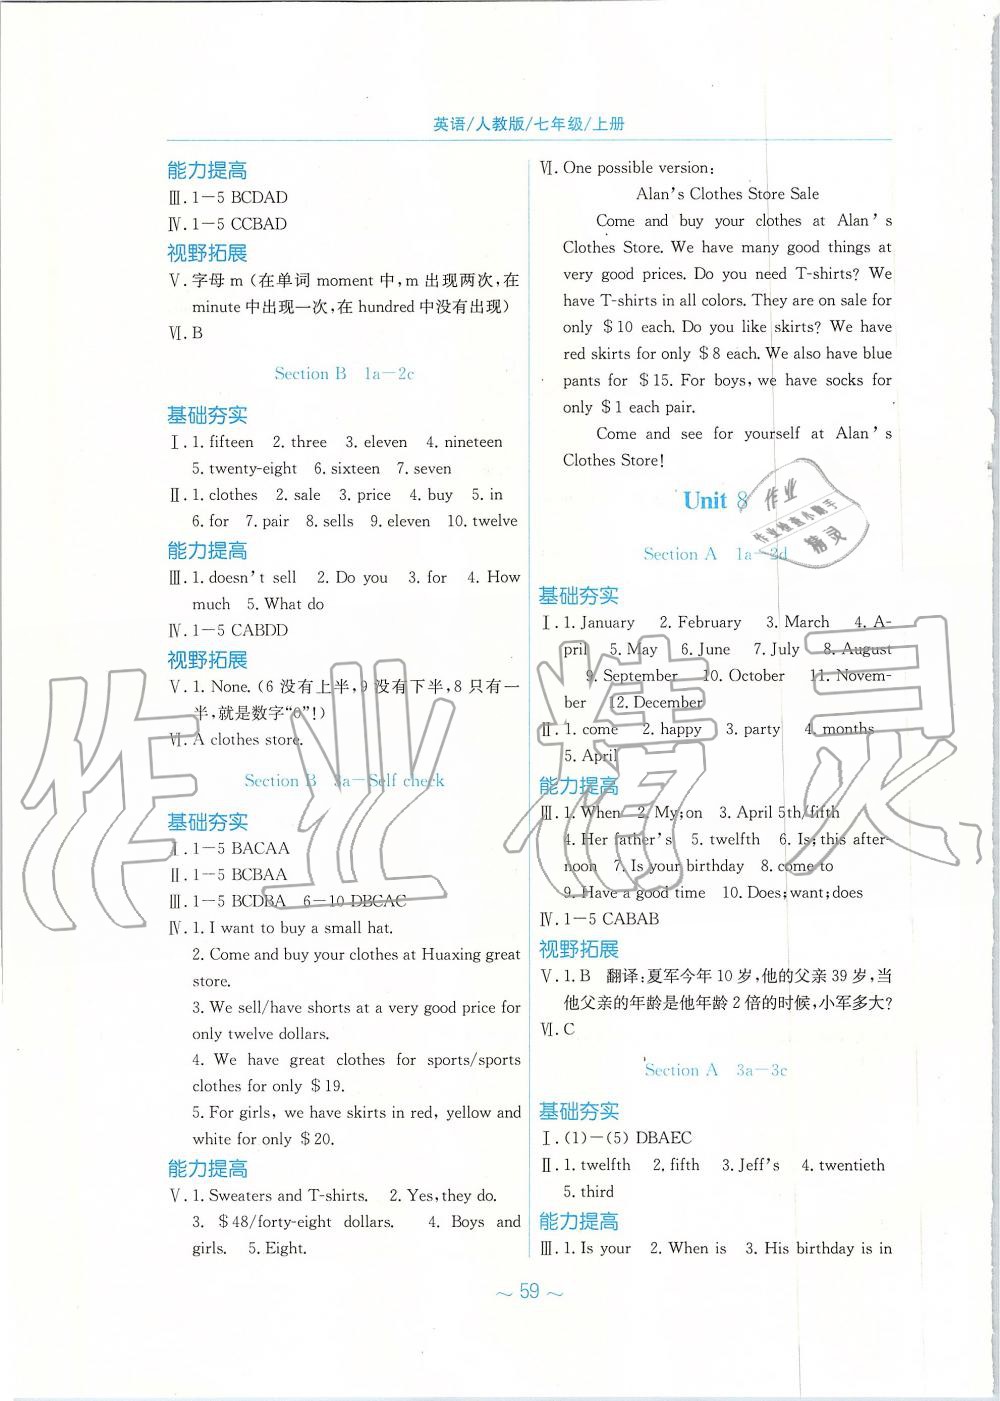 英语/人教版/七年级/上册
能力提高
Ⅲ. 1—5 BCDAD
Ⅳ. 1—5 CCBAD
视野拓展
Ⅴ. 字母 m (在单词 moment 中,m 出现两次,在
minute 中出现一次,在 hundred 中没有出现)
Ⅵ. B
Section B 1a—2c
基础夯实
Ⅰ. 1. fifteen 2. three 3. eleven 4. nineteen
5. twenty-eight 6. sixteen 7. seven
Ⅱ. 1. clothes 2. sale 3. price 4. buy 5. in
6. for 7. pair 8. sells 9. eleven 10. twelve
能力提高
Ⅲ. 1. doesn't sell 2. Do you 3. for 4. How
much 5. What do
Ⅳ. 1—5 CABDD
视野拓展
Ⅴ. 1. None. (6 没有上半,9 没有下半,8 只有一
半,就是数字“0”!)
Ⅵ. A clothes store.
Section B 3a—Self check
基础夯实
Ⅰ. 1—5 BACAA
Ⅱ. 1—5 BCBAA
Ⅲ. 1—5 BCDBA 6—10 DBCAC
Ⅳ. 1. I want to buy a small hat.
2. Come and buy your clothes at Huaxing great
store.
3. We sell/have shorts at a very good price for
only twelve dollars.
4. We have great clothes for sports/sports
clothes for only $19.
5. For girls, we have skirts in red, yellow and
white for only $20.
能力提高
Ⅴ. 1. Sweaters and T-shirts. 2. Yes, they do.
3. $48/forty-eight dollars. 4. Boys and
girls. 5. Eight.
Ⅵ. One possible version:
Alan's Clothes Store Sale
Come and buy your clothes at Alan's
Clothes Store. We have many good things at
very good prices. Do you need T-shirts? We
have T-shirts in all colors. They are on sale for
only $10 each. Do you like skirts? We have
red skirts for only $8 each. We also have blue
pants for $15. For boys, we have socks for
only $1 each pair.
Come and see for yourself at Alan's
Clothes Store!
Unit 8
作业
作业检查小助手
精灵
Section A 1a—2d
基础夯实
Ⅰ. 1. January 2. February 3. March 4. A-
pril 5. May 6. June 7. July 8. August
9. September 10. October 11. Novem-
ber 12. December
Ⅱ. 1. come 2. happy 3. party 4. months
5. April
能力提高
Ⅲ. 1. When 2. My;on 3. April 5th/fifth
4. Her father's 5. twelfth 6. Is;this after-
noon 7. Is your birthday 8. come to
9. Have a good time 10. Does;want;does
Ⅳ. 1—5 CABAB
视野拓展
Ⅴ. 1. B 翻译:夏军今年 10 岁,他的父亲 39 岁,当
他父亲的年龄是他年龄 2 倍的时候,小军多大?
Ⅵ. C
Section A 3a—3c
基础夯实
Ⅰ. (1)—(5) DBAEC
Ⅱ. 1. twelfth 2. fifth 3. Jeff's 4. twentieth
5. third
能力提高
Ⅲ. 1. Is your 2. When is 3. His birthday is in
~ 59 ~
作业精灵